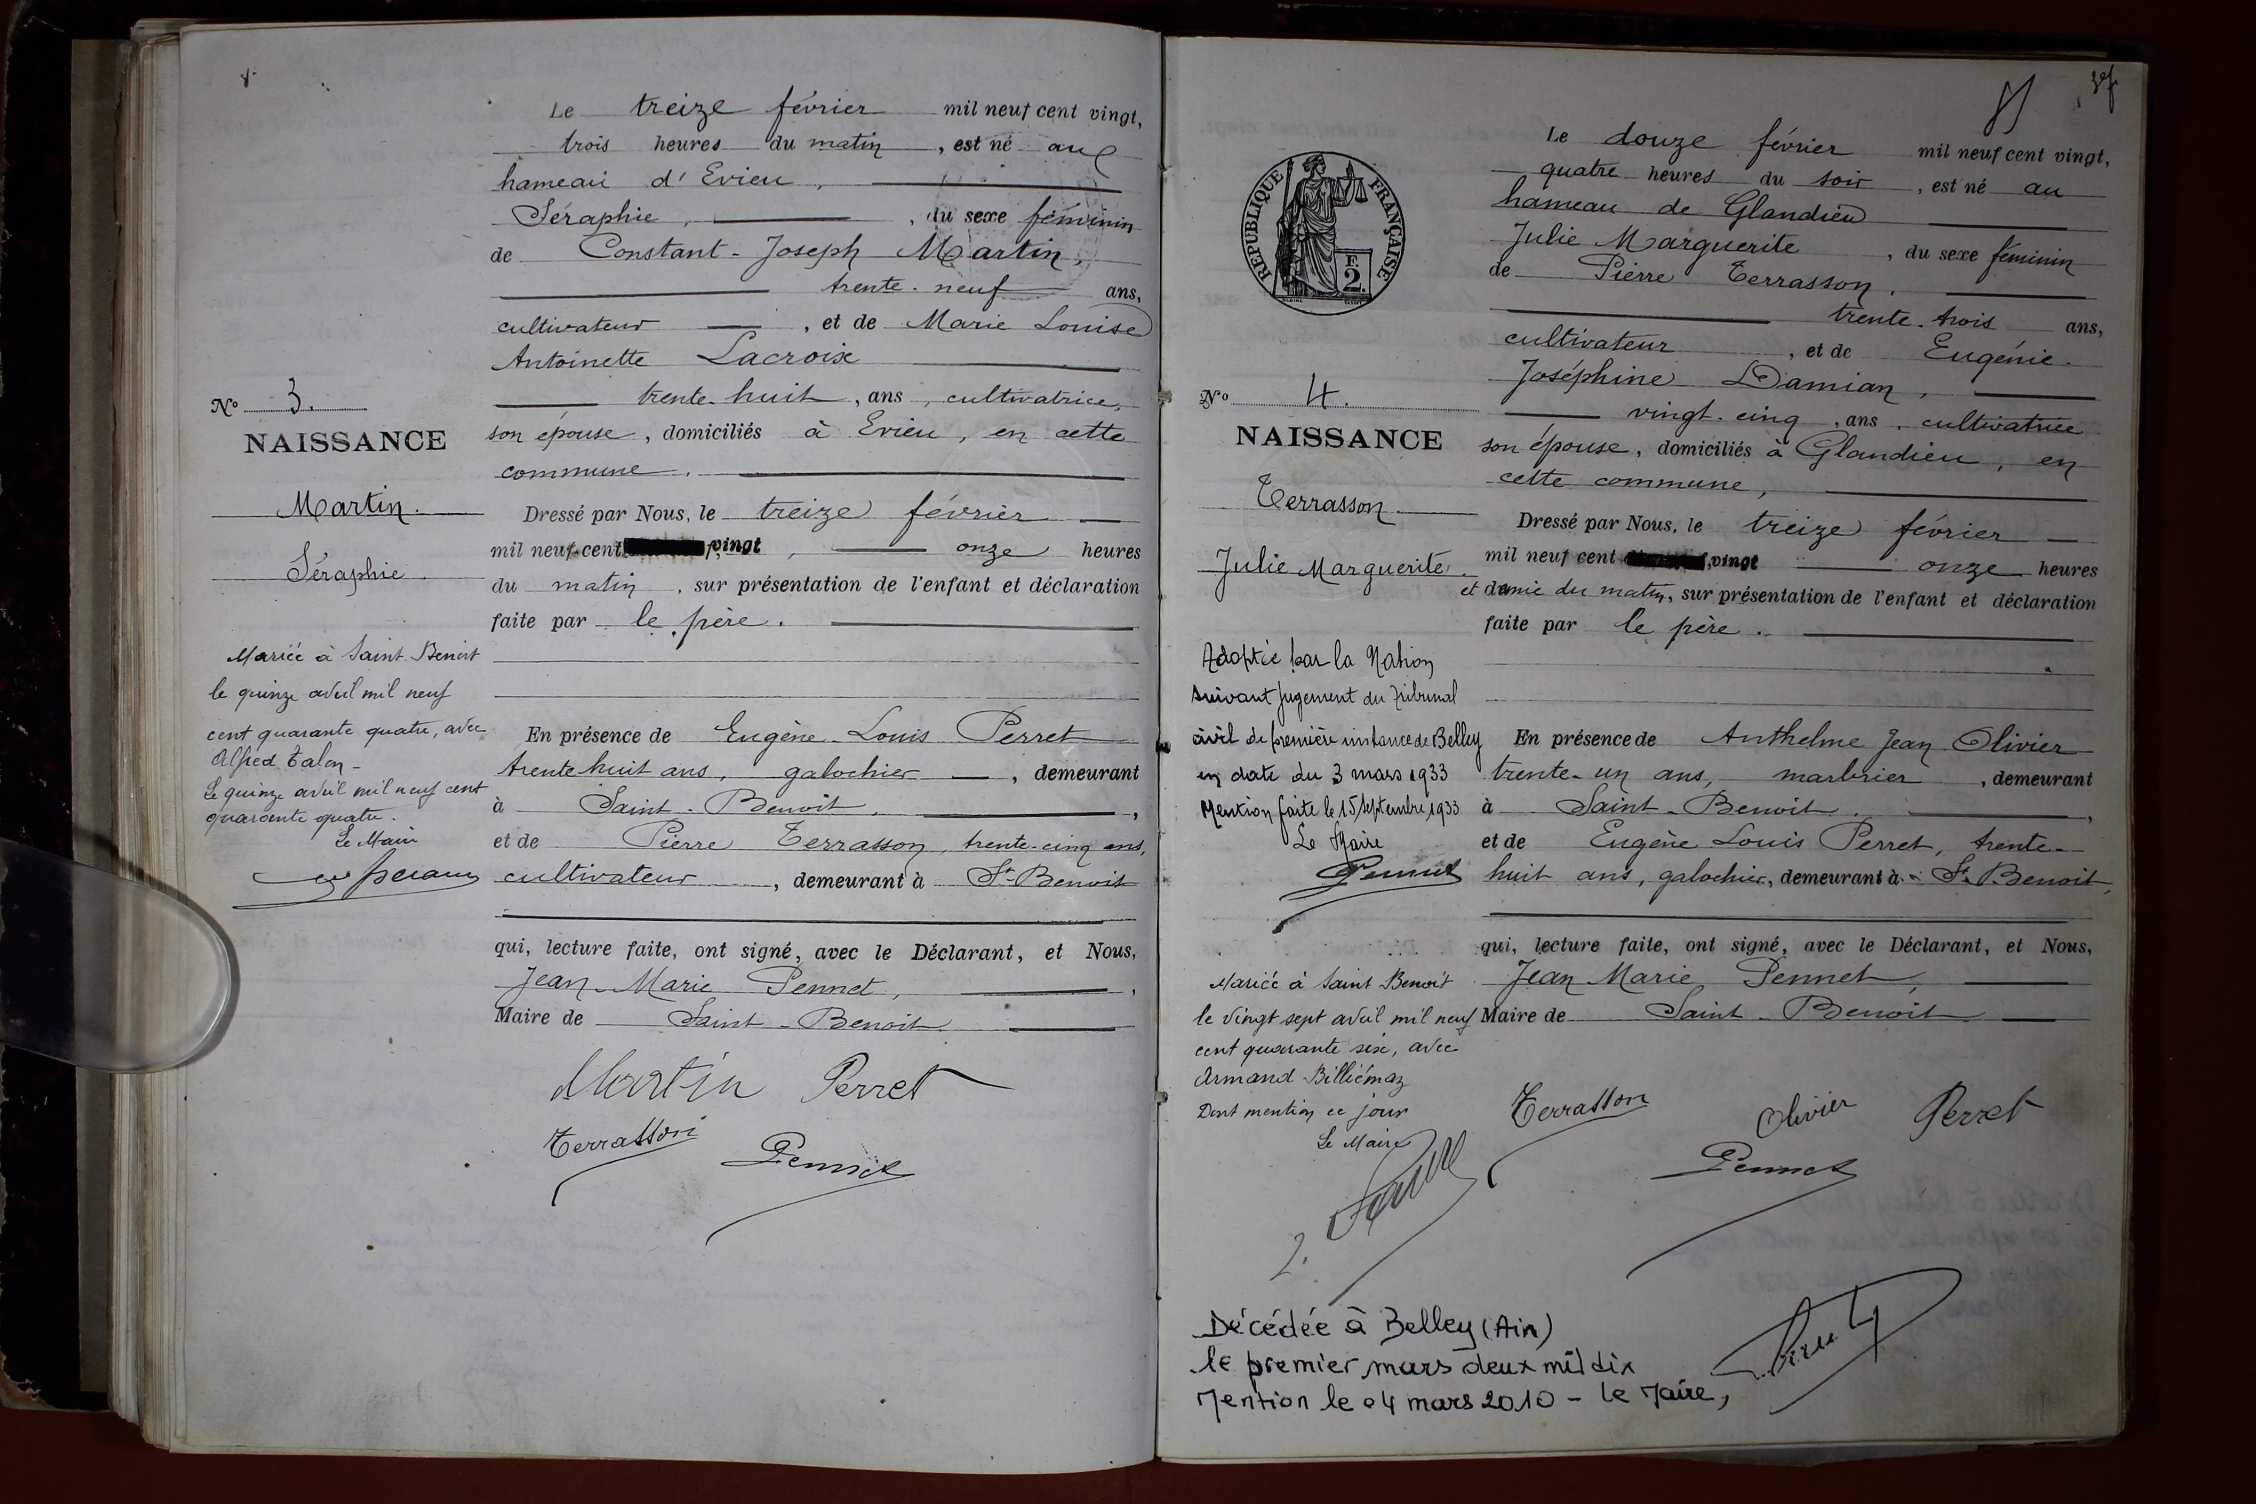 Le treize février mil neuf cent vingt,
trois heures du matin, est né au
hameau d'Evieu,
Séraphie, du sexe féminin
de Constant-Joseph Martin,
trente-neuf ans,
cultivateur, et de Marie Louise
Antoinette Lacroix
trente-huit, ans, cultivatrice,
son épouse, domiciliés à Evieu, en cette
commune.
No 3.
NAISSANCE
Martin.
Séraphie
Dressé par Nous, le treize février
mil neuf cent vingt, onze heures
du matin, sur présentation de l'enfant et déclaration
faite par le père.
Mariée à Saint-Benoit
le quinze avril mil neuf
cent quarante quatre, avec
Alfred Talon-
Le quinze avril mil neuf cent
quarante quatre.
Le Maire
En présence de Eugène-Louis Perret
trente huit ans, galochier, demeurant
à Saint-Benoit,
et de Pierre Terrasson, trente-cinq ans,
cultivateur, demeurant à St-Benoit
qui, lecture faite, ont signé, avec le Déclarant, et Nous,
Jean-Marie Pennet,
Maire de Saint-Benoit
Martin Perret
Terrasson Pennet
REPUBLIQUE FRANÇAISE
F.
2.
Le douze février mil neuf cent vingt,
quatre heures du soir, est né au
hameau de Glandieu
Julie Marguerite, du sexe féminin
de Pierre Terrasson.
trente-trois ans,
cultivateur, et de Eugénie
Joséphine Damian,
vingt-cinq, ans, cultivatrice
son épouse, domiciliés à Glandieu, en
cette commune,
No 4.
NAISSANCE
Terrasson
Julie Marguerite.
Dressé par Nous, le treize février
mil neuf cent vingt onze heures
et demie du matin, sur présentation de l'enfant et déclaration
faite par le père.
Adoptée par la Nation
suivant jugement du Tribunal
civil de première instance de Belley
en date du 3 mars 1933
Mention faite le 15 septembre 1933
Le Maire
Pennet
En présence de Anthelme Jean Olivier
trente-un ans, marbrier, demeurant
à Saint-Benoit,
et de Eugène Louis Perret, trente-
huit ans, galochier, demeurant à St-Benoit,
qui, lecture faite, ont signé, avec le Déclarant, et Nous,
Jean Marie Pennet,
Maire de Saint-Benoit
Mariée à Saint Benoit
le vingt sept avril mil neuf
cent quarante six, avec
Armand Billiémaz
Dont mention ce jour
Le Maire
Terrasson Olivier Perret
Pennet
Décédée à Belley (Ain)
le premier mars deux mil dix
Mention le 04 mars 2010 - Le Maire,